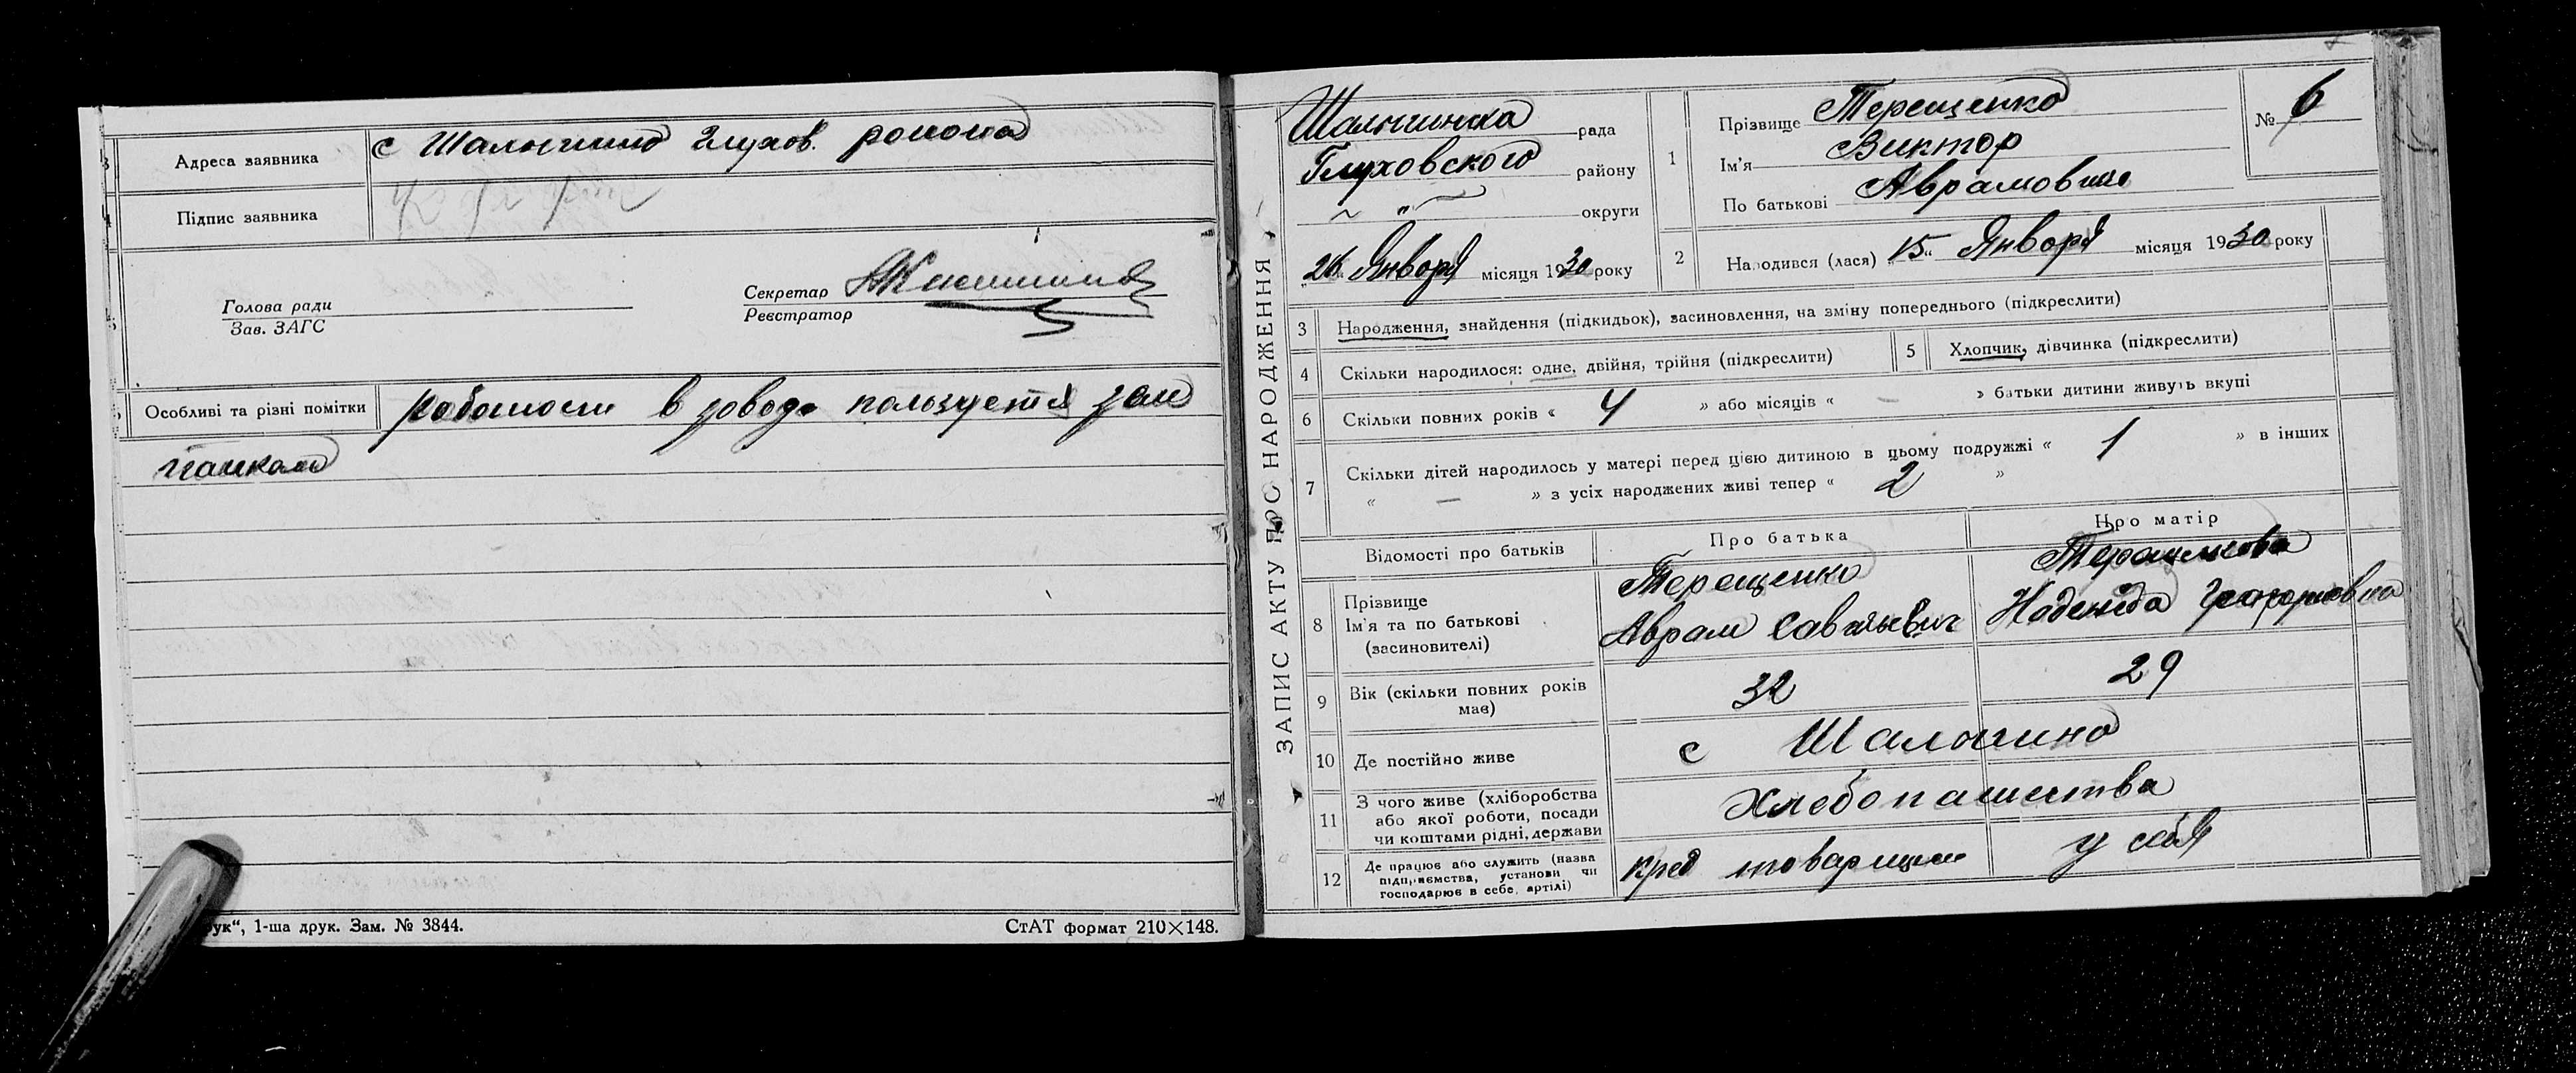 Адреса заявника с Шалыгино Глухов. района
Підпис заявника
Голова ради
Зав. ЗАГС
Секретар
Реєстратор
Особливі та різні помітки работает в заводе пользуется
СтАТ формат 210×148.
ук“, 1-ша друк. Зам. № 3844.
ЗАПИС АКТУ ПРО НАРОДЖЕННЯ
Шалыгинска рада
Глуховского району
„ округи
26 Января місяця 1930 року
1
Прізвище Терещенко
Ім'я Виктор
По батькові Аврамович
№ 6
2 Народився (лася) „15„ Января місяця 1930 року
3 Народження, знайдення (підкидьок), засиновлення, на зміну попереднього (підкреслити)
4 Скільки народилося: одне, двійня, трійня (підкреслити)
5 Хлопчик, дівчинка (підкреслити)
6 Скільки повних років « 4 » або місяців « — » батьки дитини живуть вкупі
7 Скільки дітей народилось у матері перед цією дитиною в цьому подружжі « 1 » в інших
« — » з усіх народжених живі тепер « 2 »
Відомості про батьків
Про батька
Про матір
8 Прізвище
Ім'я та по батькові
(засиновителі)
Терещенко
Аврам Савельевич
Терещенкова
Надежда
9 Вік (скільки повних років
має)
32
29
10 Де постійно живе
с Шалыгино
11 З чого живе (хліборобства
або якої роботи, посади
чи коштами рідні, держави
Хлебопашества
12 Де працює або служить (назва
підприємства, установи чи
господарює в себе, артілі)
Кред товарищ
у себя